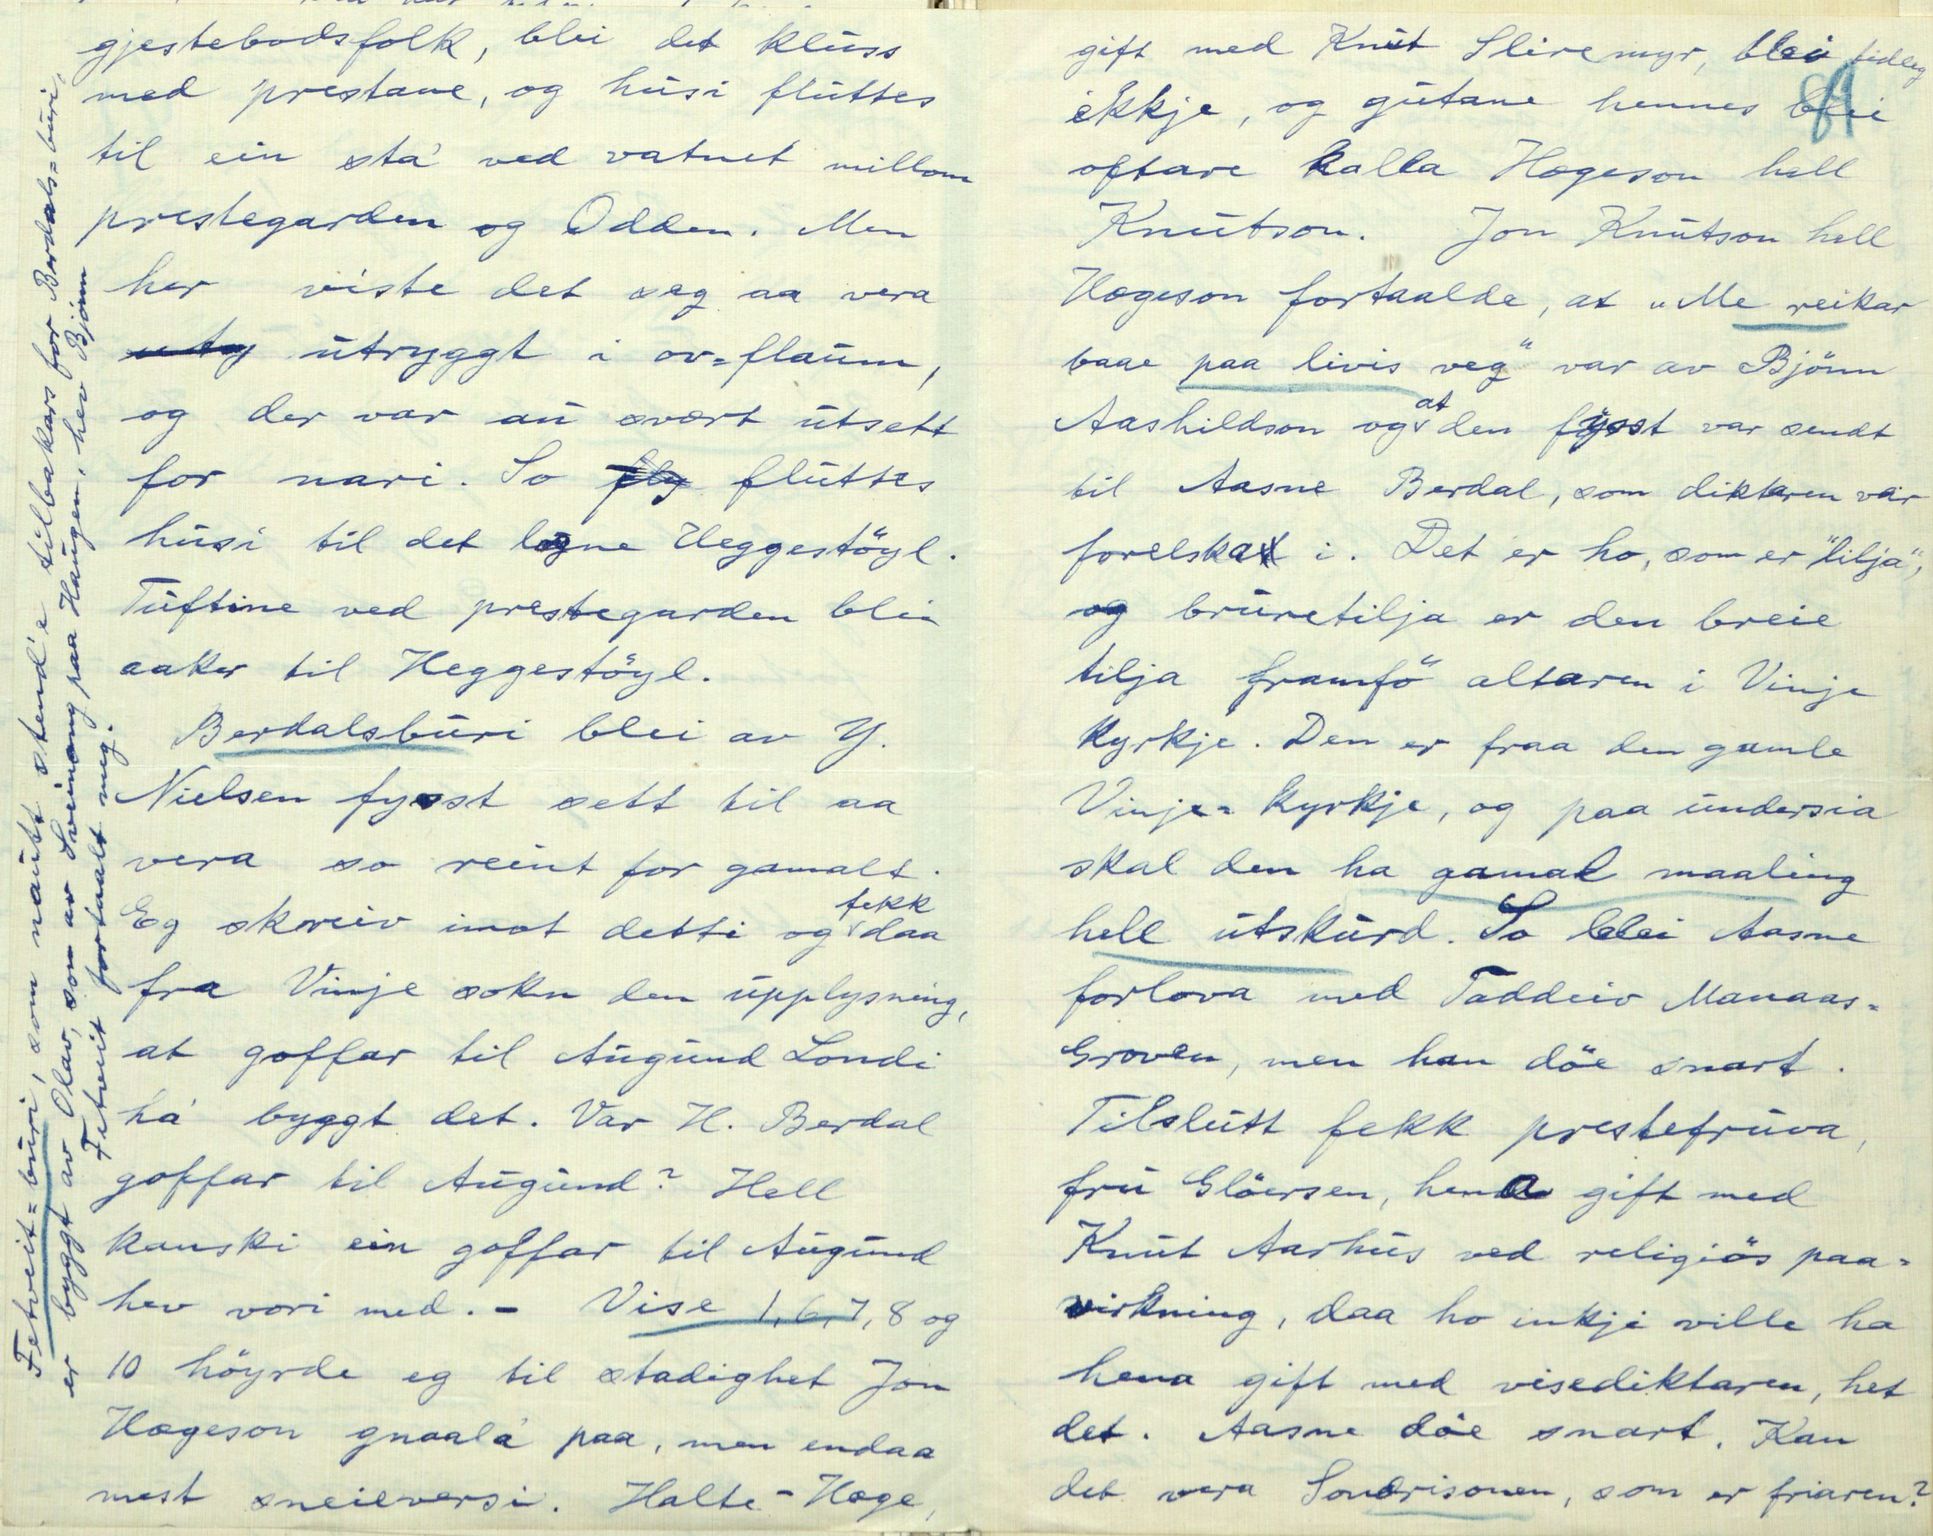 gjestebodsfolk, blei det kluss
med prestane, og husi fluttes
til ein sta' ved vatnet millom
prestegarden og Odden. Men
her viste det seg aa vera
utryggt i ov-flaum,
og der var au svært utsett
for nari. So fluttes
husi til det logne Heggestöyl.
Tuftine ved prestegarden blei
aaker til Heggestöyl.
Berdalsburi blei av Y.
Nielsen fysst sett til aa
vera so reint for gamalt.
Eg skreiv imot detti og fekk daa
fra Vinje sokn den upplysning,
at goffar til Augund Londi
ha' byggt det. Var H. Berdal
goffar til Augund? Hell
kanski ein goffar til Augund
hev vori med. - Vise 1, 6, 7, 8 og
10 höyrde eg til stadighet Jon
Hægeson gnaala' paa, men endaa
mest sneieversi. Halte-Hæge,
Fetveit-buri, som naust stend'e tilbakars for Berdals-buri,
er byggt av Olav, som av Sveinang paa Haugen, hev Bjönn
Fetveit fortaalt meg.
gift med Knut Sliremyr, blei tidleg
ekkje, og gutane hennes blei
oftare kalla Hægeson hell
Knutson. Jon Knutson hell
Hægeson fortaalde, at „Me reikar
baae paa livis veg" var av Bjönn
Aashildson og at den fysst var sendt
til Aasne Berdal, som diktaren var
forelska i. Det er ho, som er "lilja",
og bruretilja er den breie
tilja framfö altaren i Vinje
kyrkje. Den er fraa den gamle
Vinje-kyrkje, og paa undersia
skal den ha gamal maaling
hell utskurd. So blei Aasne
forlova med Taddeiv Manaas-
Groven, men han döe snart.
Tilslutt fekk prestefruva,
fru Glöersen, hena gift med
Knut Aarhus ved religiös paa-
virkning, daa ho inkje ville ha
hena gift med visediktaren, het
det. Aasne döe snart. Kan
det vera Sondrisonen, som er friaren?